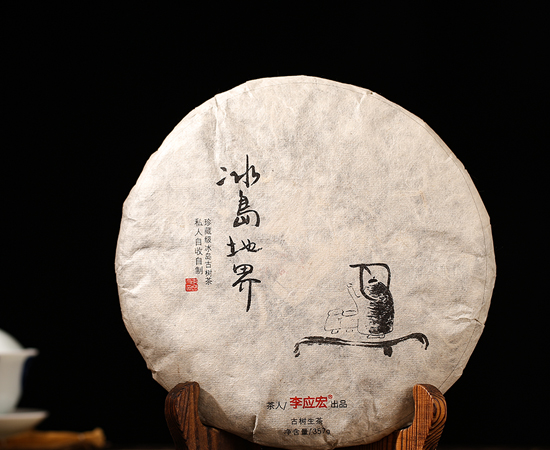 冰島地界
珍藏级冰岛古树茶
私人自收自制
茶人/李应宏®出品
古树生茶
净含量/357g